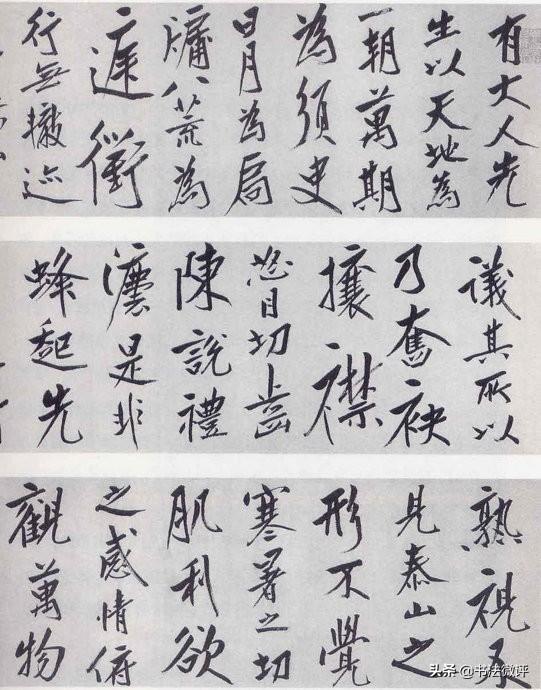 有大人先
生以天地為
一朝萬期
為須臾
日月為扃
牖八荒為
庭衢
行無轍迹
議其所以
乃奮袂
攘襟
怒目切齒
陳說禮
灋是非
蜂起先
熟視不
見泰山之
形不覺
寒暑之切
肌利欲
之感情俯
觀萬物
头条 @书法微评